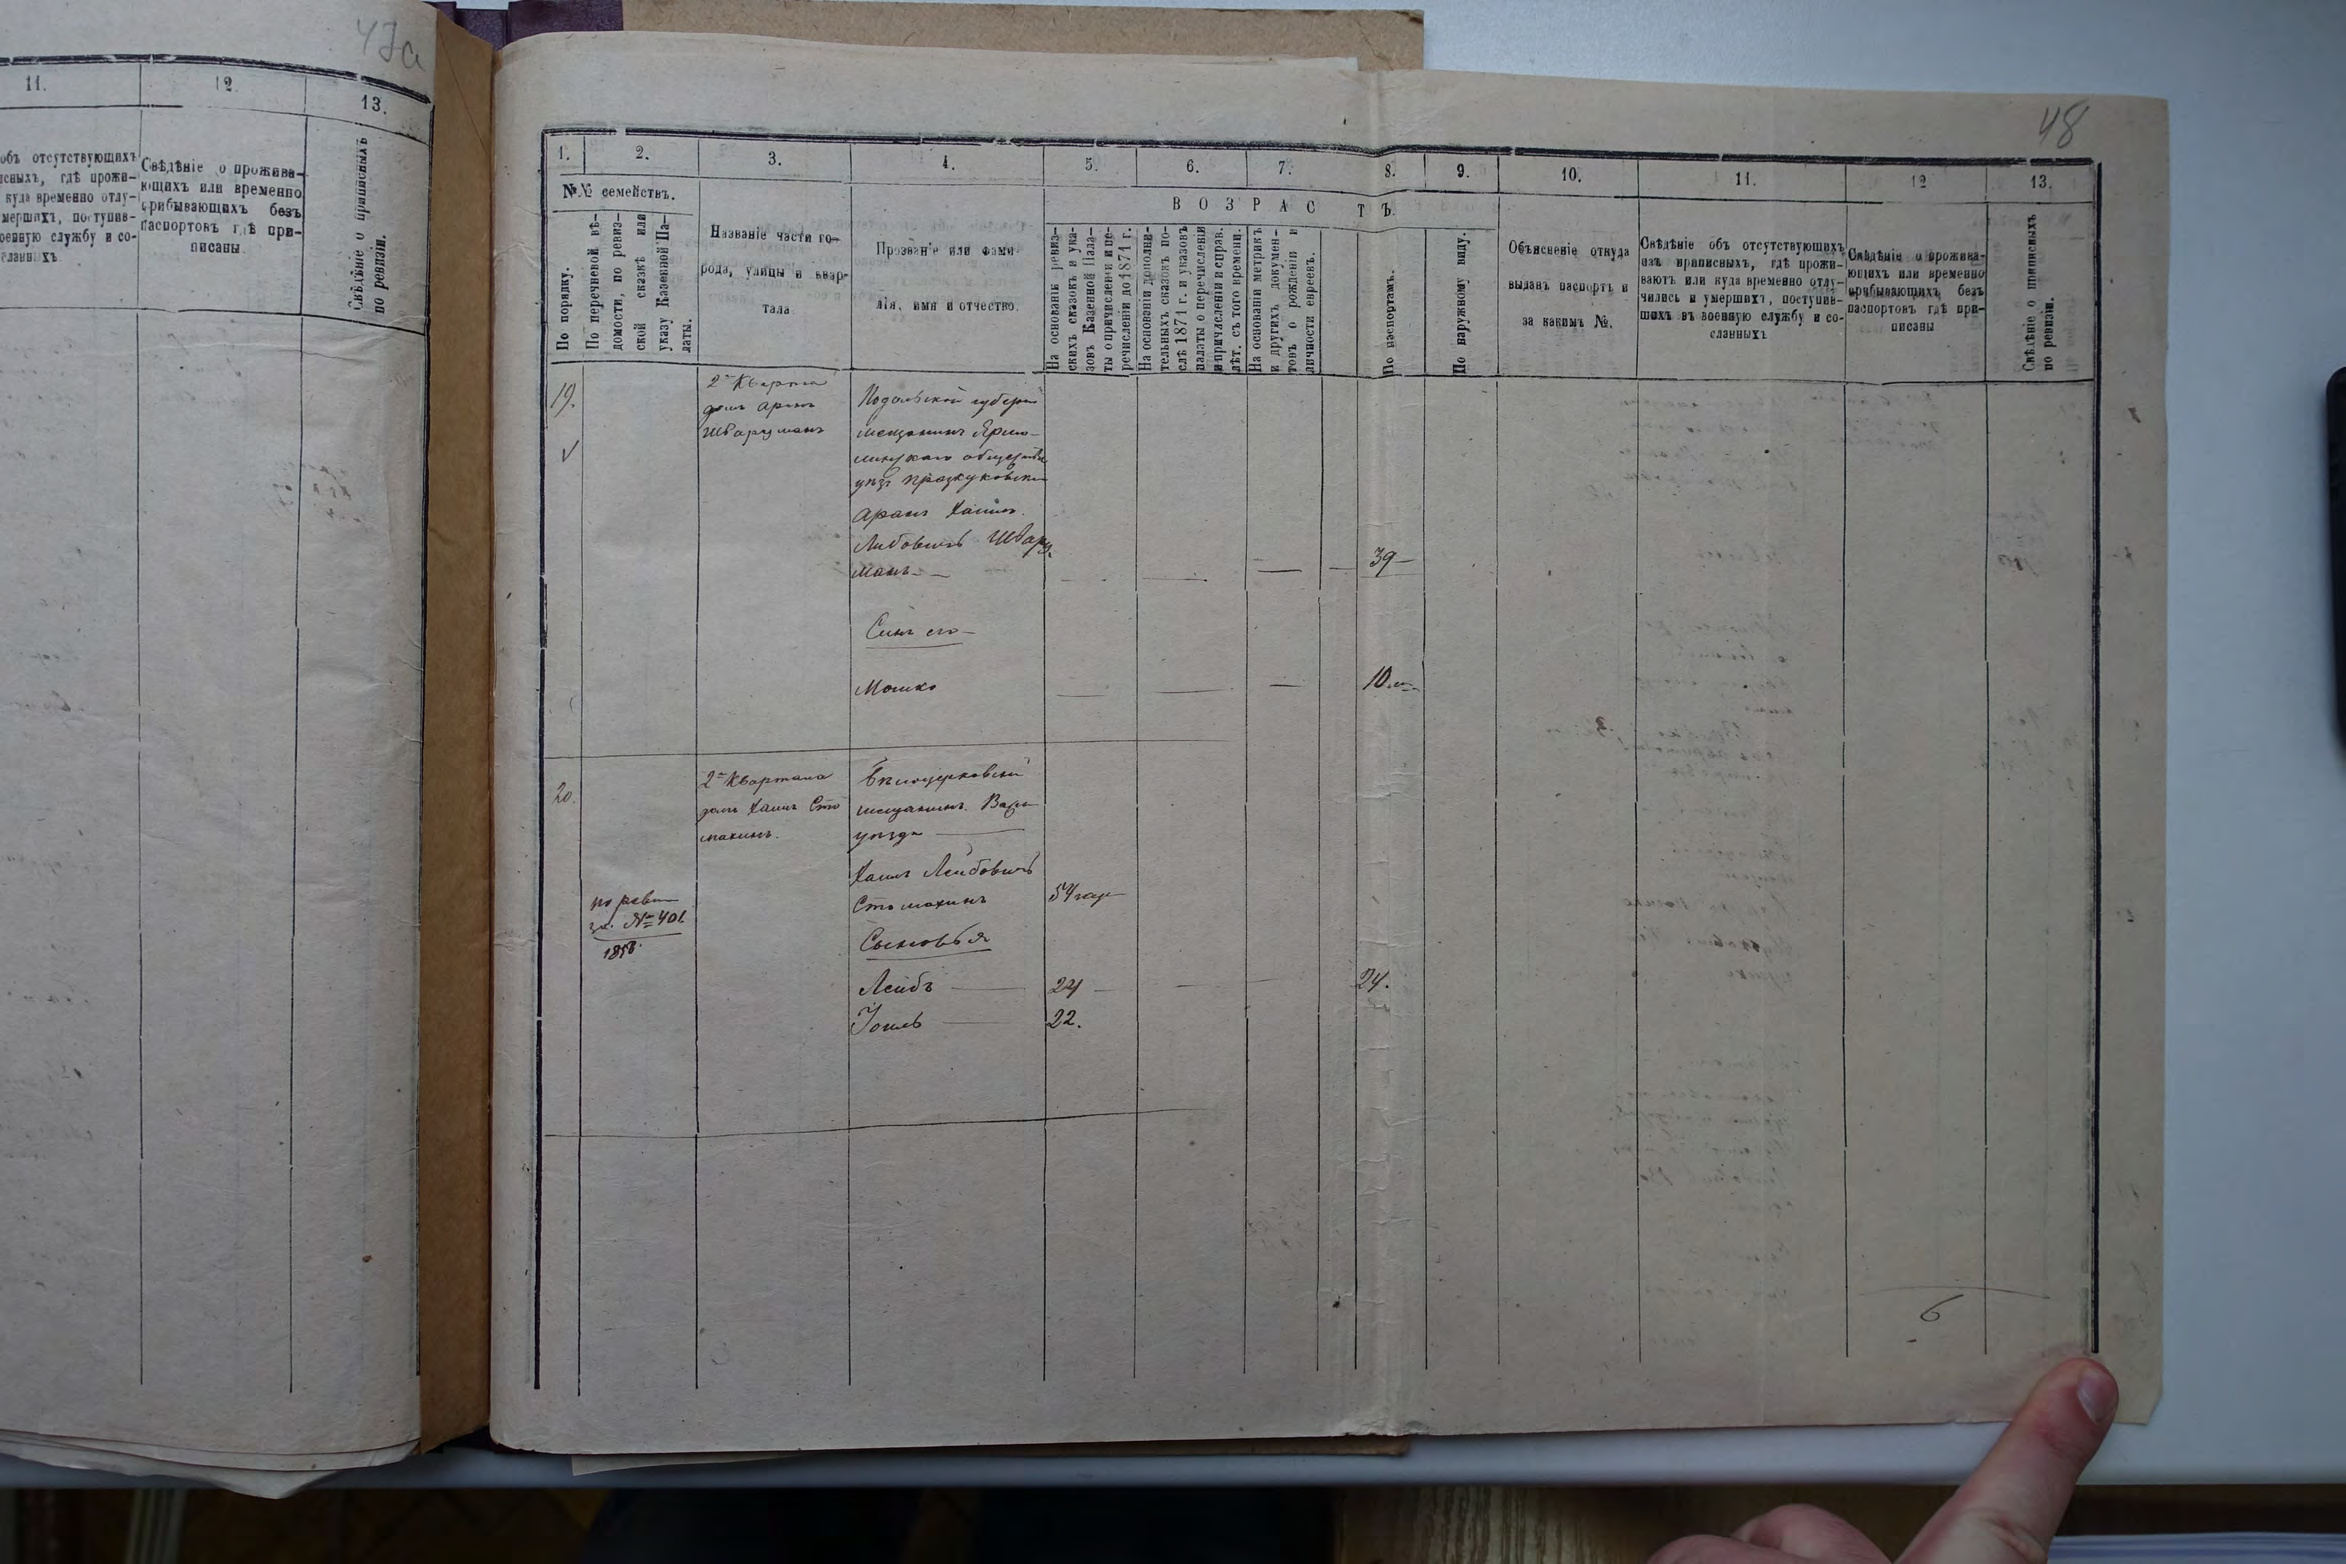 47а
11.
12.
13.
объ отсутствующихъ
исныхъ, гдѣ прожи-
куда временно отлу-
мершихъ, поступив-
военную службу и со-
сланныхъ
Свѣдѣніе о прожива-
ющихъ или временно
прибывающихъ безъ
паспортовъ гдѣ при-
писаны
Свѣдѣніе о приписныхъ
по ревизіи.
48
1.
2.
3.
4.
5.
6.
7.
8.
9.
10.
11.
12
13.
№№ семействъ.
По порядку.
По перечневой вѣ-
домости, по ревиз-
ской сказкѣ или
указу Казенной Па-
латы.
Названіе части го-
рода, улицы и квар-
тала
Прозваніе или фами-
лія, имя и отчество.
ВОЗРАСТЪ.
На основаніе ревиз-
скихъ сказокъ и ука-
зовъ Казенной Пала-
ты о причисленіи и пе-
речисленіи до 1871 г.
На основаніи дополни-
тельныхъ сказокъ по-
слѣ 1871 г. и указовъ
палаты о перечисленіи
и причисленіи и справ.
лѣт. съ того времени.
На основаніи метрикъ
и другихъ докумен-
товъ о рожденіи и
личности евреевъ.
По паспортамъ.
По наружному виду.
Объясненіе откуда
выданъ паспортъ и
за какимъ №.
Свѣдѣніе объ отсутствующихъ
изъ приписныхъ, гдѣ прожи-
ваютъ или куда временно отлу-
чились и умершихъ, поступив-
шихъ въ военную службу и со-
сланныхъ
Свѣдѣніе о прожива-
ющихъ или временно
прибывающихъ безъ
паспортовъ гдѣ при-
писаны
Свѣдѣніе о приписныхъ
по ревизіи.
19.
2го Квартала
домъ Аронъ
Шварцманъ
Подольской губерніи
мещанинъ Ярмо-
линскаго общества
Аронъ Хаимъ
Лейбовичъ Шварц-
манъ — 39 —
Сынъ его —
Мошко — 10
20.
2го Квартала
домъ Хаимъ Сто
махинъ.
Бѣлоцерковскій
мещанинъ Васи
уѣзда
по реви
№ 401
1858
Хаимъ Лейбовичъ
Стомахинъ 54
Сыновья
Лейбъ — 24 — 24.
Іоиль — 22.
6